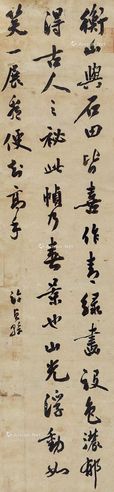 衡山與石田皆喜作青綠畫設色濃郁
得古人之秘此幀乃春景也山光浮動如
笑一展卷便知高手